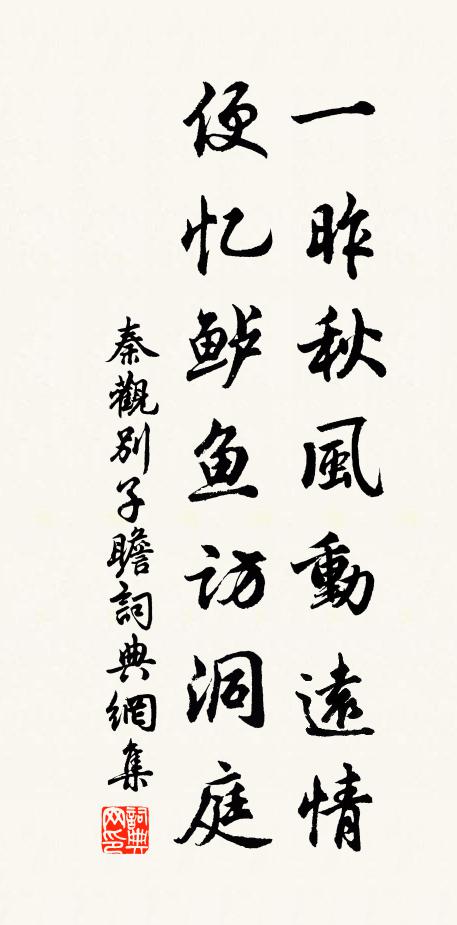 一昨秋風動遠情
便忆鲈鱼访洞庭
秦觀別子瞻詞典網集
詞典
网印